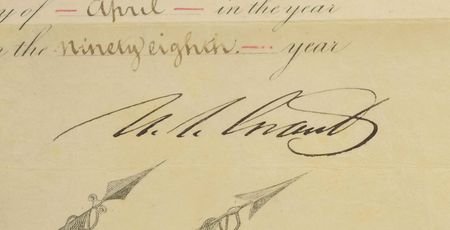 y of — April — in the year
the Ninety eighth — year
U. S. Grant